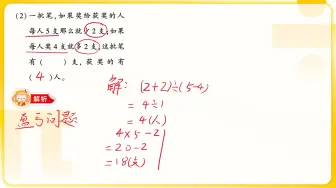 (2)一批笔,如果奖给获奖的人
每人5支那么就少2支,如果
每人奖4支就多2支,这批笔
有( )支,获奖的有
(4)人。
解析
盈亏问题
解: (2+2)÷(5-4)
=4÷1
=4(人)
4×5-2
=20-2
=18(支)